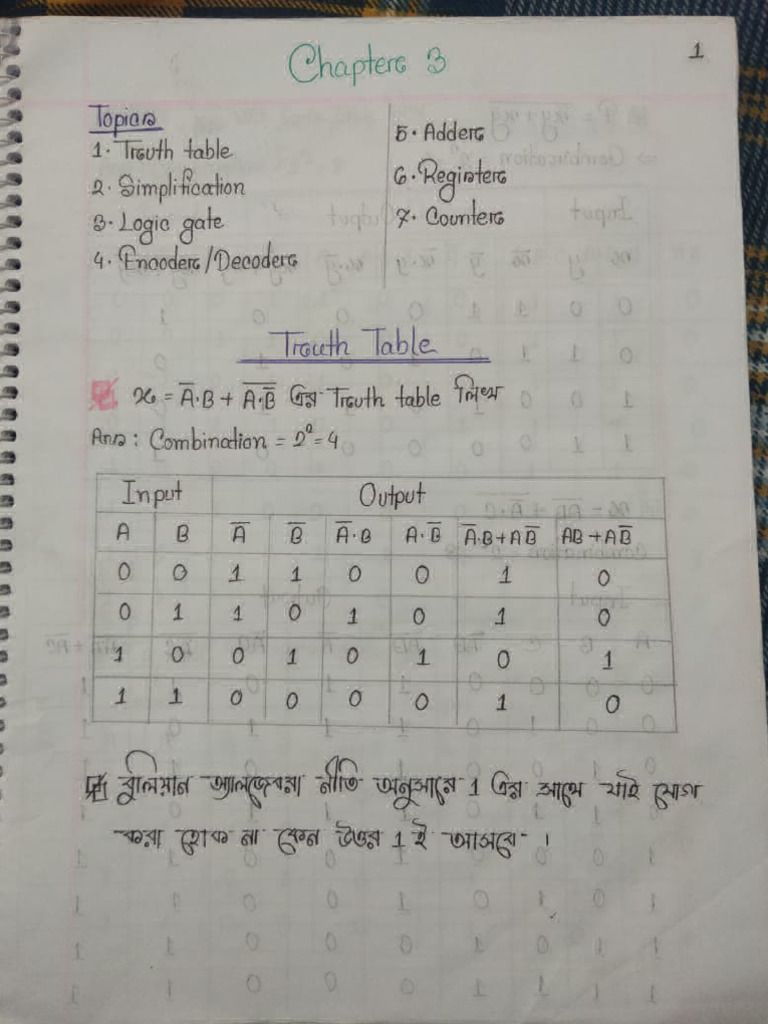 Chapter 3
1
Topics
1. Truth table
2. Simplification
3. Logic gate
4. Encoder/Decoder
5. Adder
6. Register
7. Counter
Truth Table
x = A̅·B + A̅·̅B̅̅ এর Truth table লিখ
Ans : Combination = 2² = 4
Input Output
A B A̅ B̅ A̅·B A·B̅ A̅·B+AB̅ AB+AB̅
0 0 1 1 0 0 1 0
0 1 1 0 1 0 1 0
1 0 0 1 0 1 0 1
1 1 0 0 0 0 1 0
বুলিয়ান অ্যালজেবরা নীতি অনুসারে 1 এর সাথে যাই যোগ
করা হোক না কেন উত্তর 1 ই আসবে ।